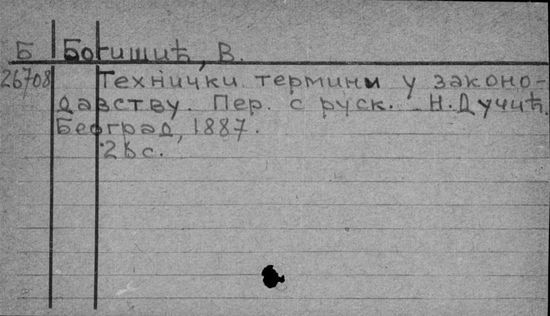 Б Богишић, В.
26708 Технички термини у законо-
давству. Пер. с руск. Н. Дучић.
Београд, 1887.
26 с.